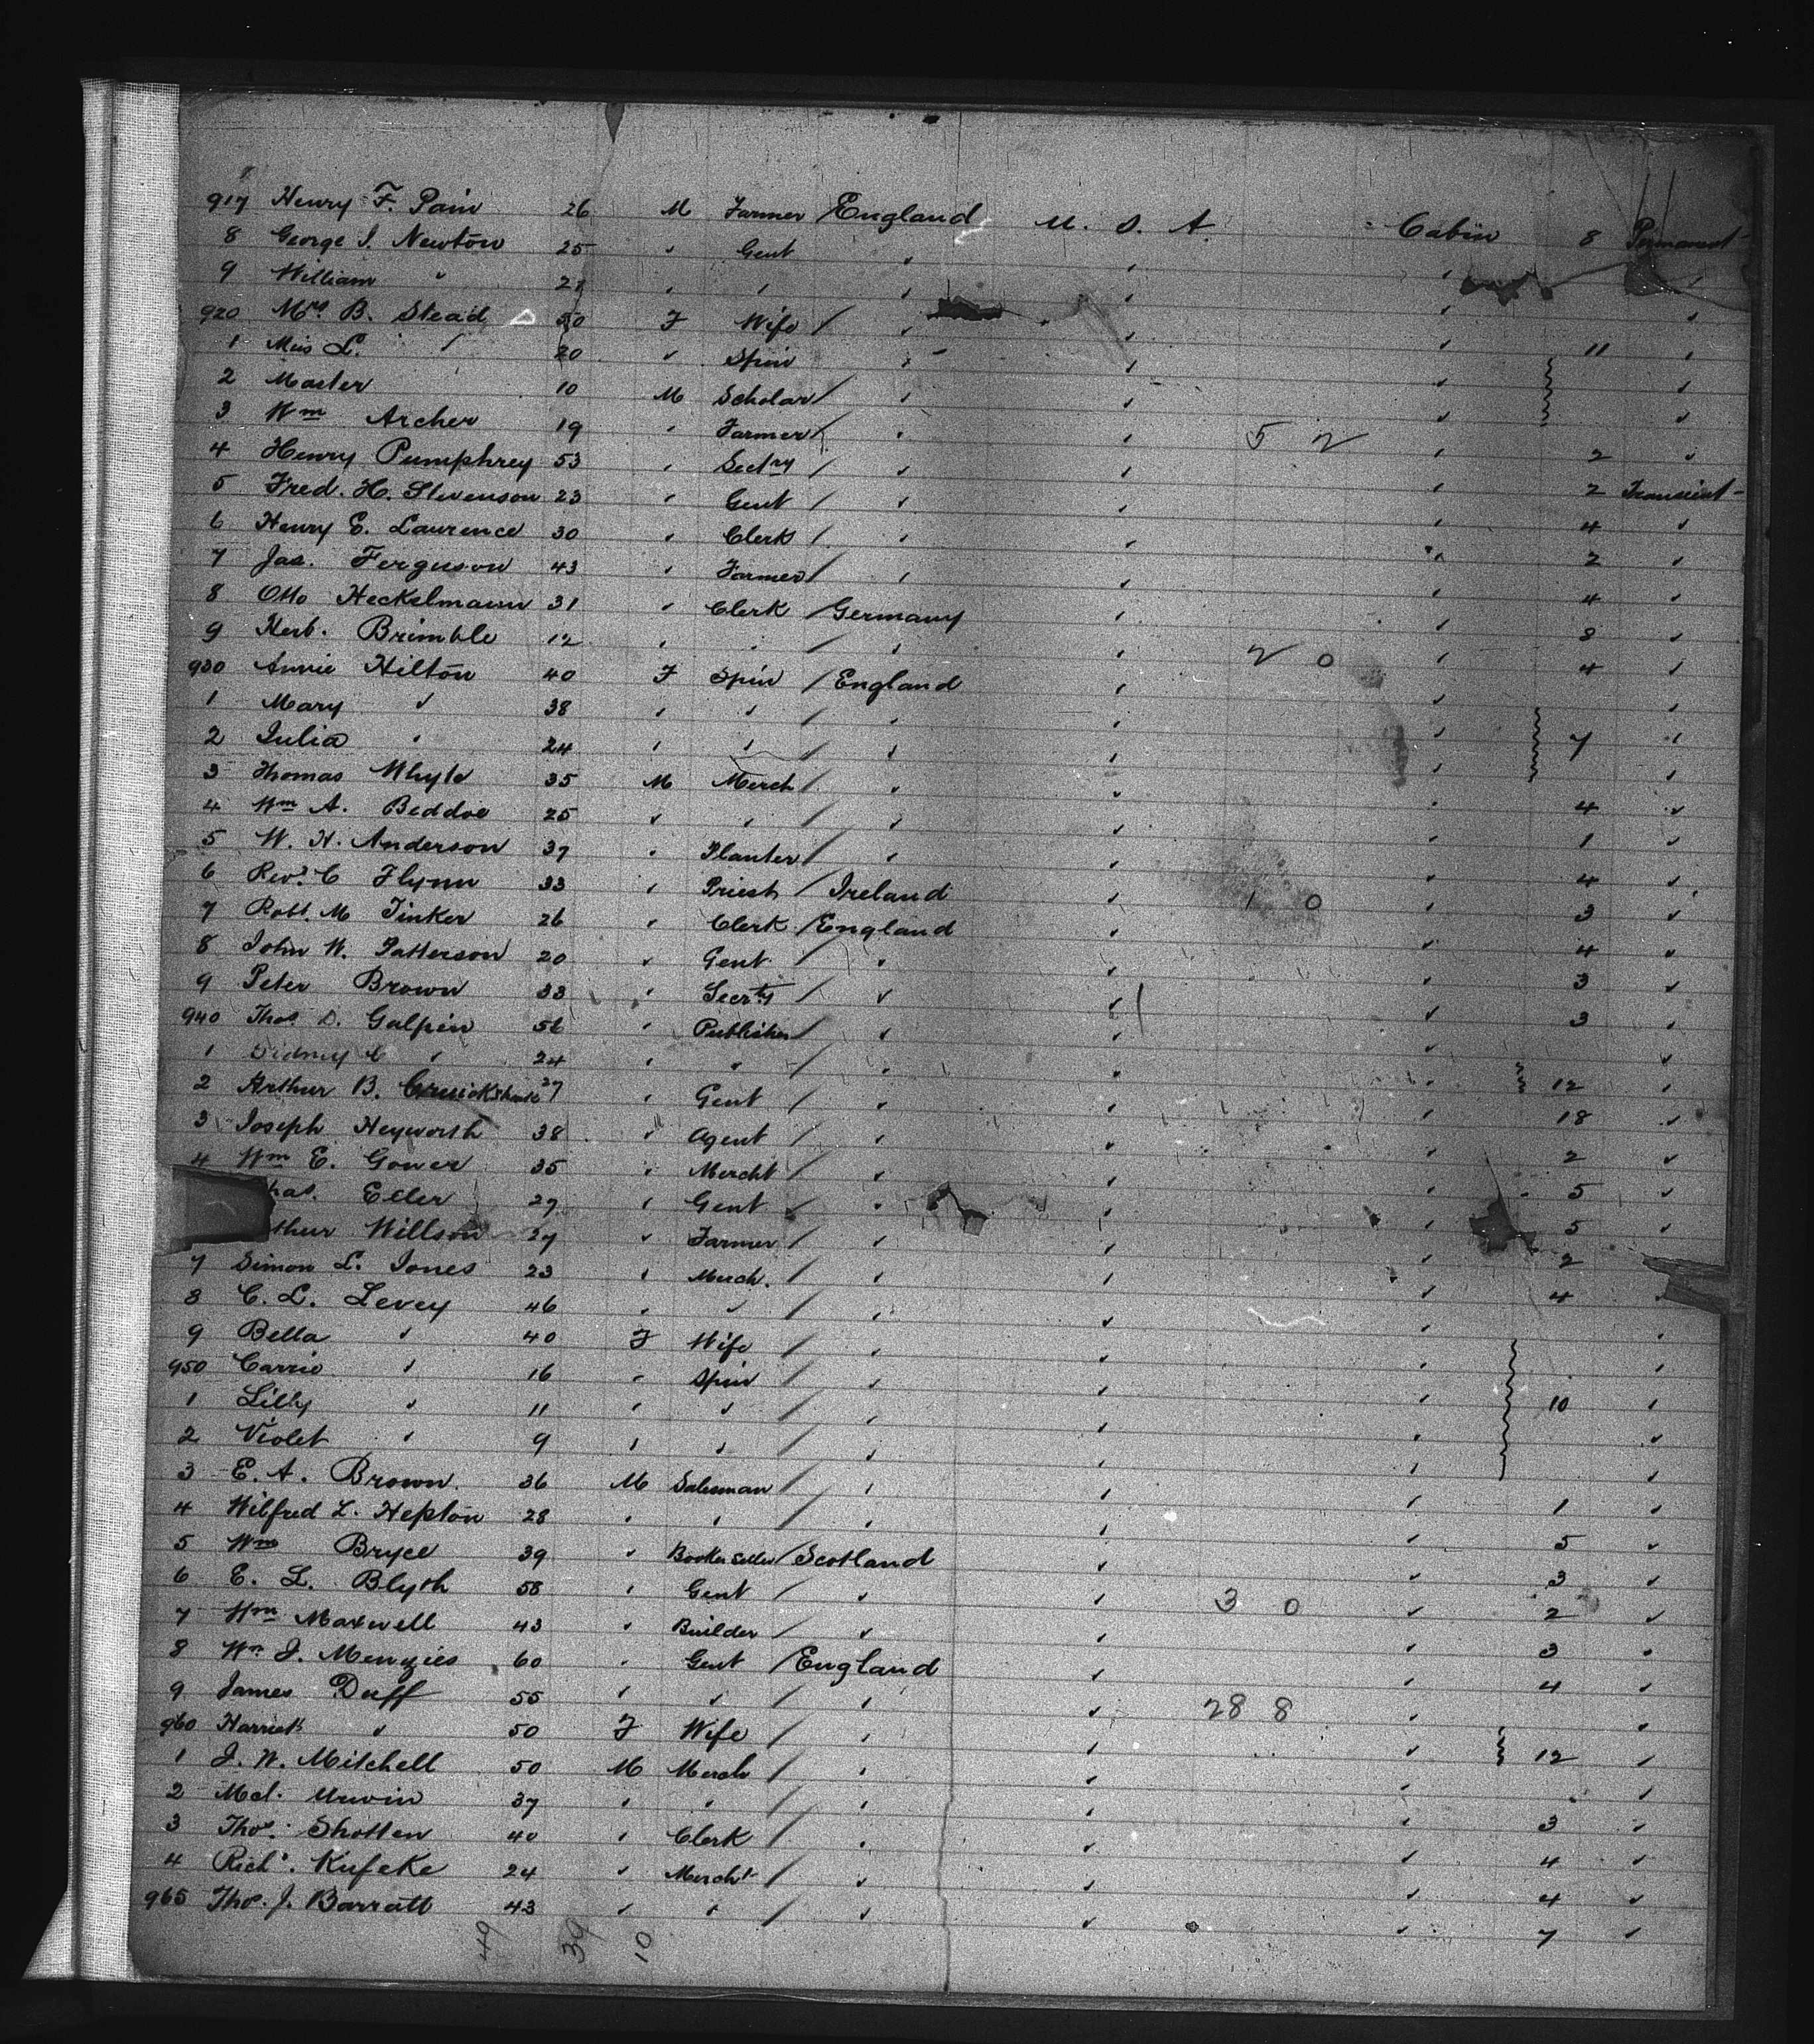 917 Henry F. Pain 26 M Farmer / England U. S. A. Cabin 8 Permanent
8 George I. Newton 25 " Gent " " "
9 William " 21 " " " " "
920 Mrs B. Stead 50 F Wife / " " " 11 "
1 Miss L. " 20 " Spin " " " "
2 Master 10 M Scholar / " " " "
3 Wm Archer 19 " Farmer / " " 5 2 " 2 "
4 Henry Pumphrey 53 " Sectry / " " " 2 Transient
5 Fred. H. Stevenson 23 " Gent / " " " 4 "
6 Henry E. Laurence 30 " Clerk / " " " 2 "
7 Jas. Ferguson 43 " Farmer / " " " 4 "
8 Otto Heckelmann 31 " Clerk / Germany " " 8 "
9 Herb. Brimble 12 " " / " " 2 0 " 4 "
930 Annie Hilton 40 F Spin / England " " "
1 Mary " 38 " " / " " " 7 "
2 Julia " 24 " " / " " " "
3 Thomas Whyte 35 M Merch / " " " 4 "
4 Wm A. Beddoe 25 " " / " " " 1 "
5 W. H. Anderson 37 " Planter / " " " 4 "
6 Revd. C Flynn 33 " Priest / Ireland " 1 0 " 3 "
7 Robt. M Tinker 26 " Clerk / England " " 4 "
8 John W. Patterson 20 " Gent / " " " 3 "
9 Peter Brown 33 " Secrty / " " " 3 "
940 Thos D. Galpin 56 " Publisher / " " " "
1 Sidney C " 24 " " / " " " 12 "
2 Arthur B. Cruickshank 27 " Gent / " " " 18 "
3 Joseph Heyworth 38 " Agent / " " " 2 "
4 Wm E. Gower 35 " Mercht / " " " 5 "
has. Eller 27 " Gent / " " " 5 "
thur Willson 27 " Farmer / " " " 2
7 Simon L. Jones 23 " Merch. / " " " 4 "
8 C. L. Levey 46 " " / " " " "
9 Bella " 40 F Wife / " " " "
950 Carrie " 16 " Spin / " " " 10 "
1 Lilly " 11 " " / " " " "
2 Violet " 9 " " / " " " "
3 E. A. Brown. 36 M Salesman / " " " 1 "
4 Wilfred L. Hepton 28 " " / " " " 5 "
5 Wm Bryce 39 " Bookeseller / Scotland " " 3 "
6 E. L. Blyth 58 " Gent / " " 3 0 " 2 "
7 Wm Maxwell 43 " Builder / " " " 3 "
8 Wm J. Menzies 60 " Gent / England " " 4 "
9 James Duff 55 " " / " " 28 8 " "
960 Harriet " 50 F Wife / " " " 12 "
1 J. W. Mitchell 50 M Merch / " " " "
2 Mcl. Urwin 37 " " / " " " 3 "
3 Thos. Shotten 40 " Clerk / " " " 4 "
4 Richd. Kufeke 24 " Mercht / " " " 4 "
965 Thos. J. Barratt 43 " " / " " " 7 "
49 39 10